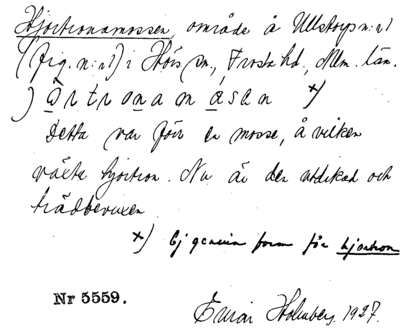 Hjortronamossen, område å Ullstorps n:r 1
(fig. n:r 1) i Hörs sn, Frosta hd, Mlm. län.
Detta var förr en mosse, å vilken
växte hjortron. Nu är den utdikad och
trädbevuxen
x) Ej genuin form för hjortron
Nr 5559.
Einar Holmberg. 1927.